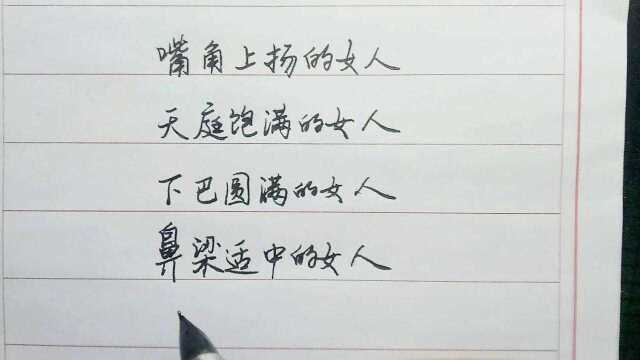 嘴角上扬的女人
天庭饱满的女人
下巴圆满的女人
鼻梁适中的女人